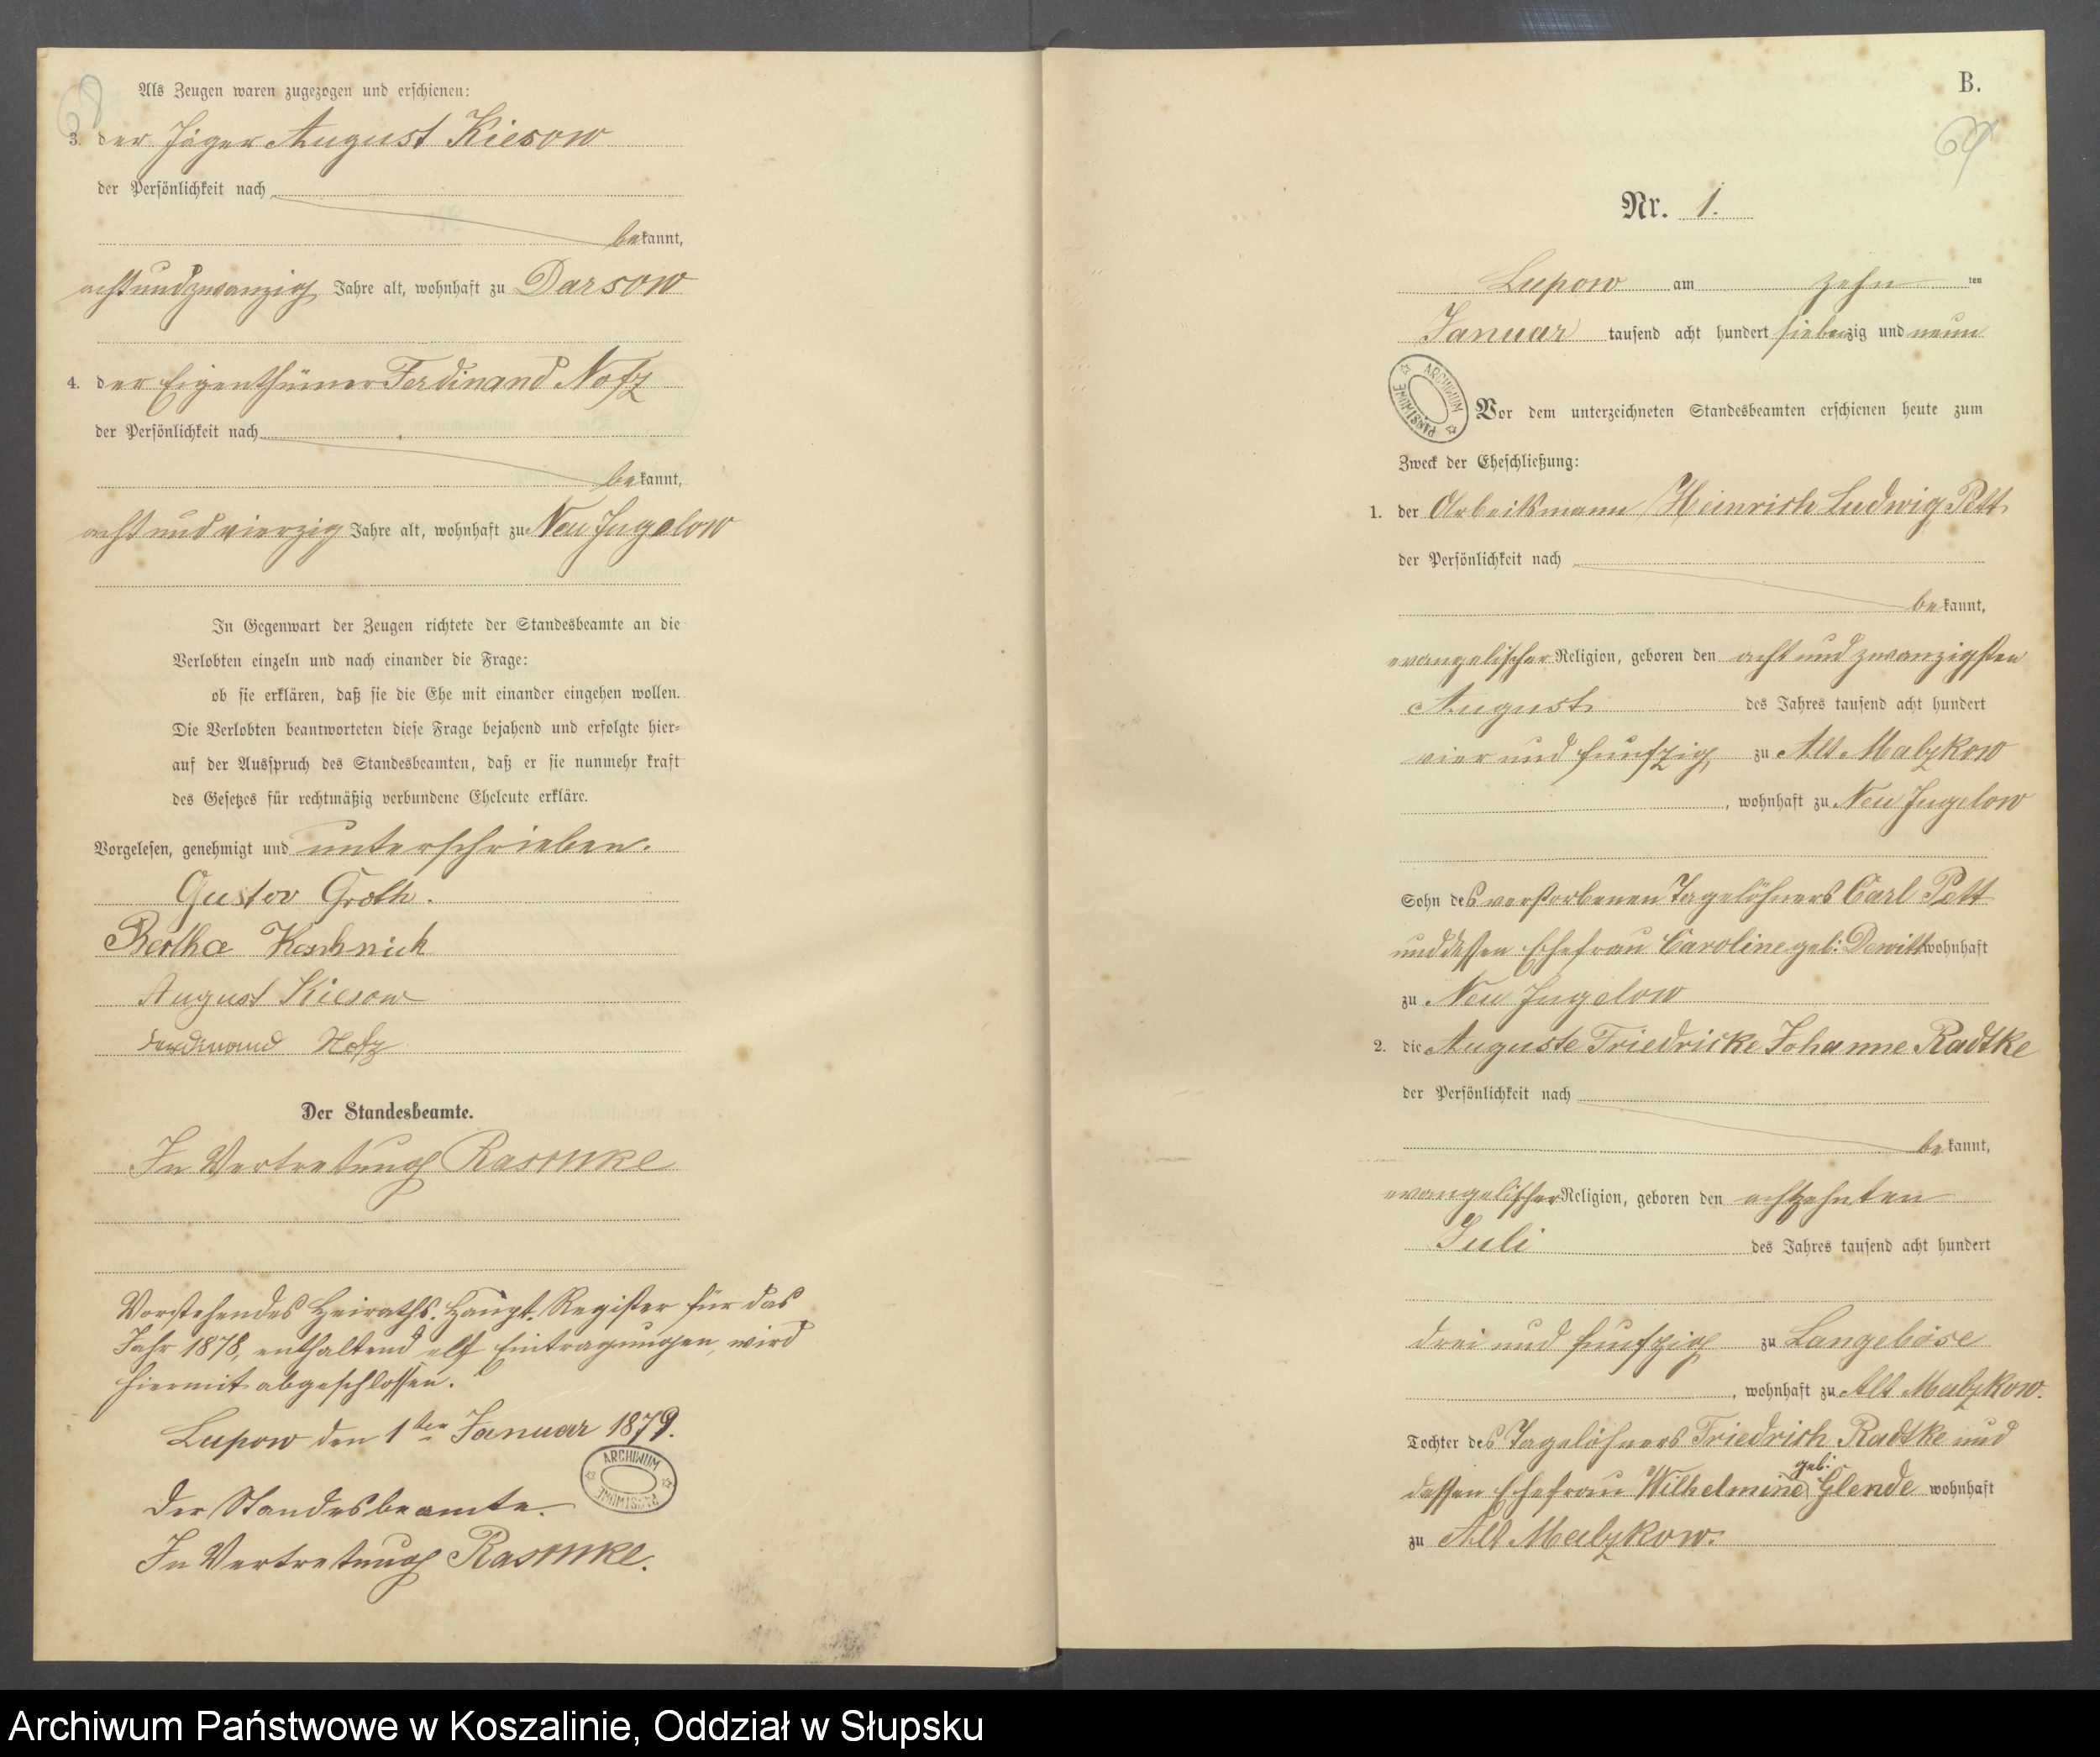 68
Als Zeugen waren zugezogen und erschienen:
3. der Jäger August Kiesow
der Persönlichkeit nach
bekannt,
acht und zwanzig Jahre alt, wohnhaft zu Darsow
4. der Eigenthümer Ferdinand Notz
der Persönlichkeit nach
bekannt,
acht und vierzig Jahre alt, wohnhaft zu Neu Jugelow
In Gegenwart der Zeugen richtete der Standesbeamte an die
Verlobten einzeln und nach einander die Frage:
ob sie erklären, daß sie die Ehe mit einander eingehen wollen.
Die Verlobten beantworteten diese Frage bejahend und erfolgte hier-
auf der Ausspruch des Standesbeamten, daß er sie nunmehr kraft
des Gesetzes für rechtmäßig verbundene Eheleute erkläre.
Vorgelesen, genehmigt und unterschrieben.
Gustav Groth.
Bertha
August Kiesow
Ferdinand Notz
Der Standesbeamte.
In Vertretung
Vorstehendes Heiraths-Haupt-Register für das
Jahr 1878, enthaltend elf Eintragungen, wird
hiermit abgeschlossen.
Lupow den 1ten Januar 1879.
ARCHIWUM PAŃSTWOWE
Der Standesbeamte.
In Vertretung
B.
69
Nr. 1.
Lupow am zehnten
Januar tausend acht hundert siebenzig und neun
ARCHIWUM PAŃSTWOWE
Vor dem unterzeichneten Standesbeamten erschienen heute zum
Zweck der Eheschließung:
1. der Arbeitsmann Heinrich Ludwig Pett
der Persönlichkeit nach
bekannt,
evangelischer Religion, geboren den acht und zwanzigsten
August des Jahres tausend acht hundert
vier und funfzig zu Alt Malzkow
, wohnhaft zu Neu Jugelow
Sohn des verstorbenen Tagelöhners Carl Pett
und dessen Ehefrau Caroline geb: Dewitt wohnhaft
zu Neu Jugelow
2. die Auguste Friedricke Johanne Radtke
der Persönlichkeit nach
bekannt,
evangelischer Religion, geboren den achtzehnten
Juli des Jahres tausend acht hundert
drei und funfzig zu Langeböse
, wohnhaft zu Alt Malzkow.
Tochter des Tagelöhners Friedrich Radtke und
dessen Ehefrau Wilhelmine geb: Glende wohnhaft
zu Alt Malzkow.
Archiwum Państwowe w Koszalinie, Oddział w Słupsku